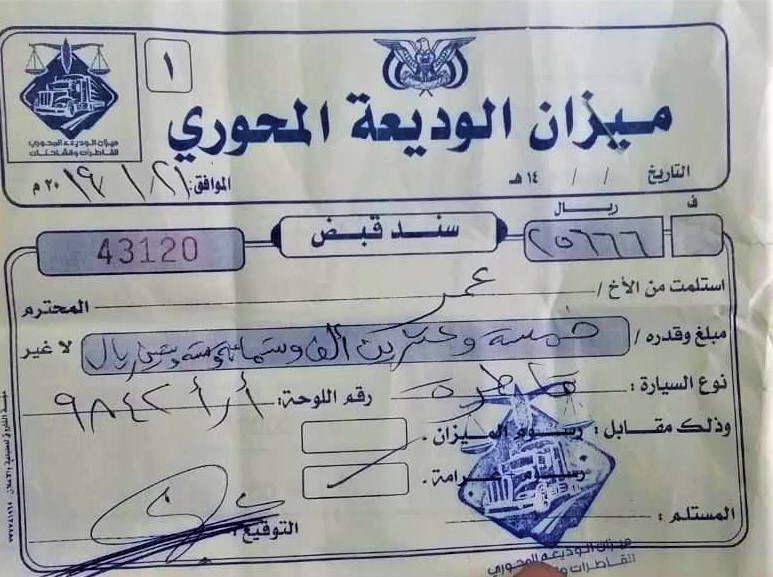 ١
ميزان الوديعة المحوري
ميزان الوديعة المحوري
للقاطرات والشاحنات
التاريخ / / ١٤ هـ
الموافق: ٢١ / ١ / ٢٠١٩ م
ف ريال
٢٥٦٦٦
سند قبض
43120
استلمت من الأخ / عمر المحترم
مبلغ وقدره / خمسة وعشرين ألف وستمائة وستة وستين ريال لا غير
نوع السيارة : قاطره رقم اللوحة: ٩٨٤٢ أ/أ
وذلك مقابل : رسوم الميزان .
رسوم غرامة .
المستلم :
التوقيع :
ميزان الوديعة المحوري